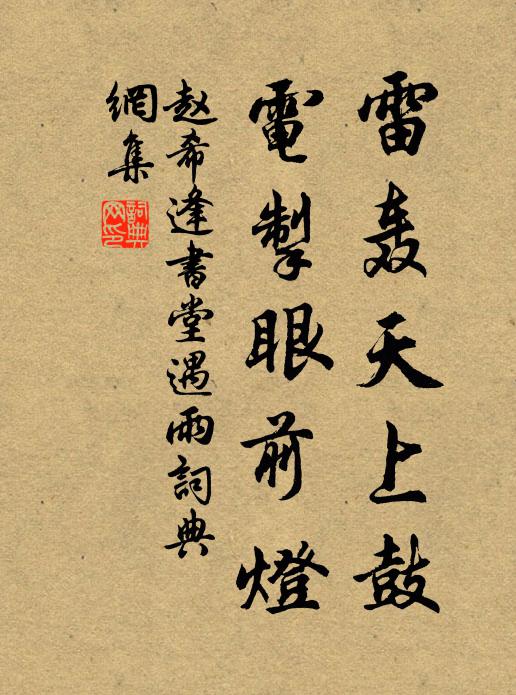 雷轰天上鼓
電掣眼前燈
赵希逢書堂遇雨詞典
網集
詞典
网印